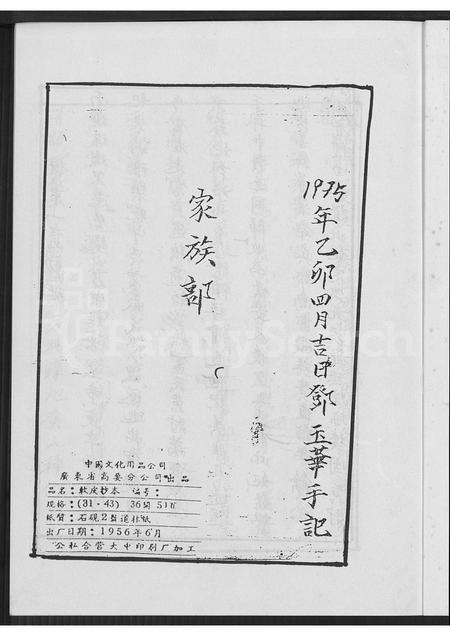 1975年乙卯四月吉日鄧玉華手記
家族部
中国文化用品公司
廣東省高要分公司出品
品名：軟皮抄本 编号：
规格：(31-43) 36開 51頁
纸質：石砚2号道林纸
出厂日期：1956年6月
公私合营大中印刷厂加工
FamilySearch